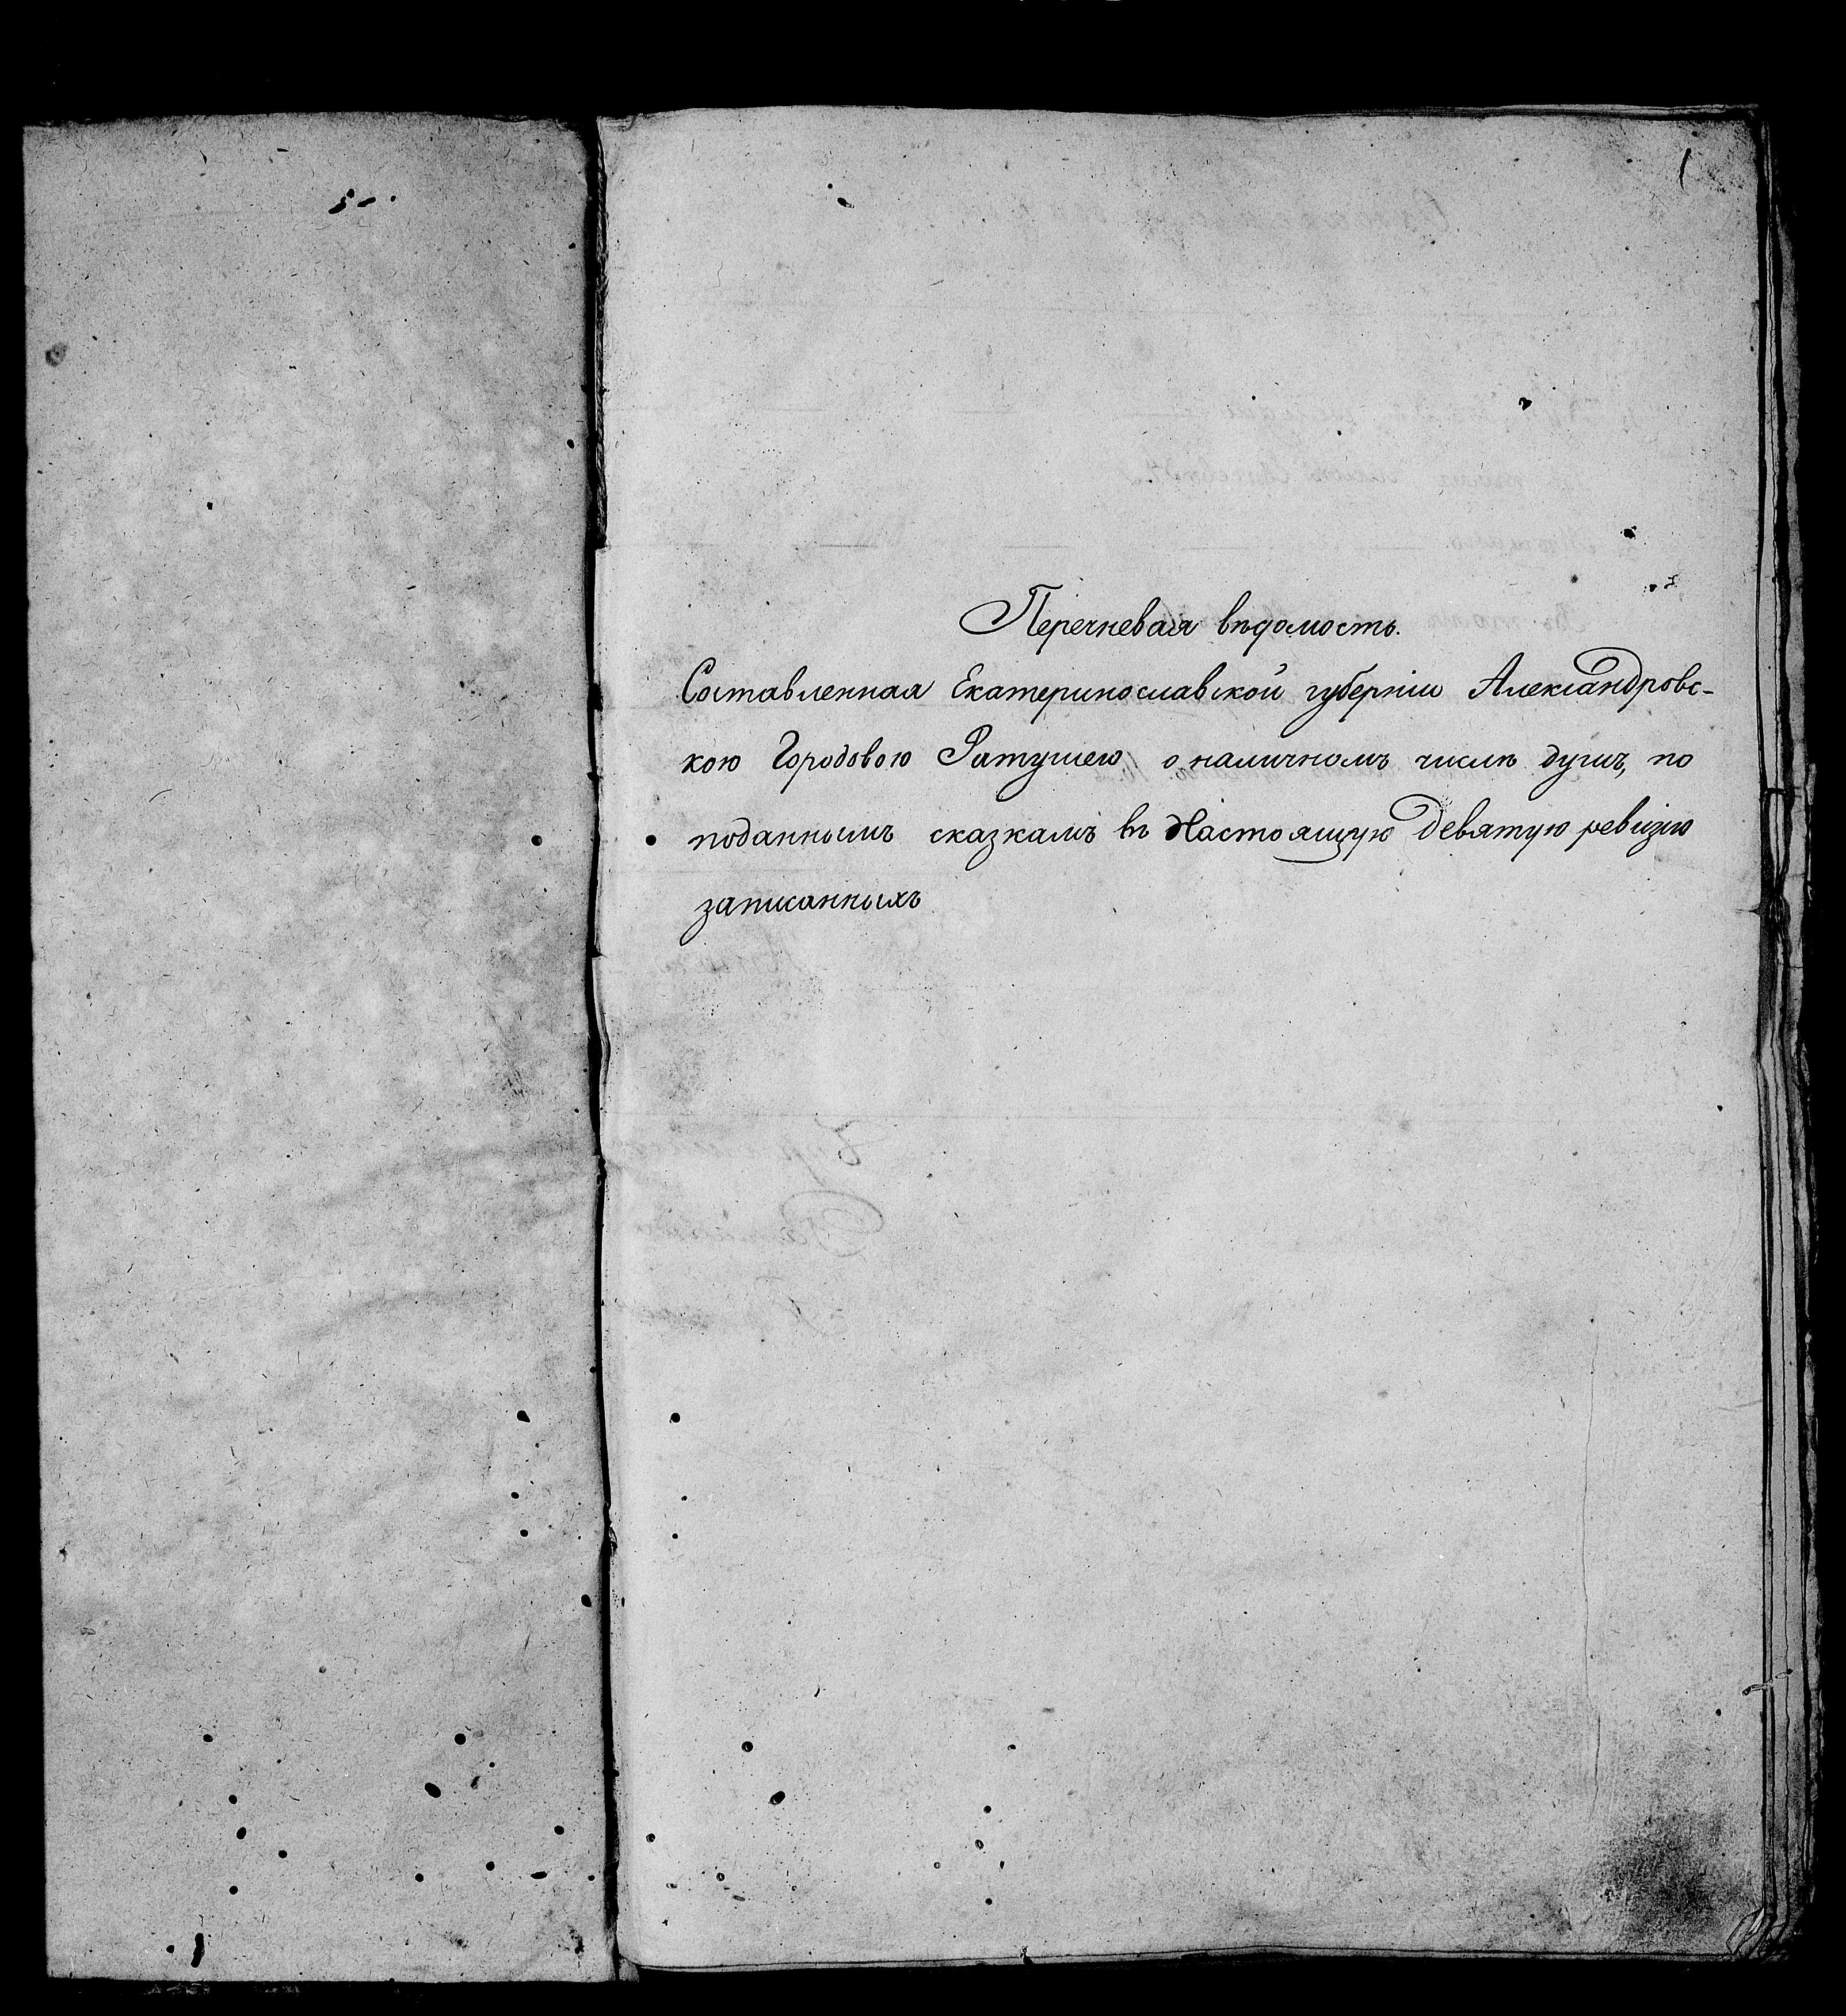 1
Перечневая вѣдомость.
Составленная Екатеринославской губерніи Александровс-
кою Городовою Ратушею о наличномъ числѣ душъ, по
поданнымъ сказкамъ въ Настоящую девятую ревизію
записанныхъ